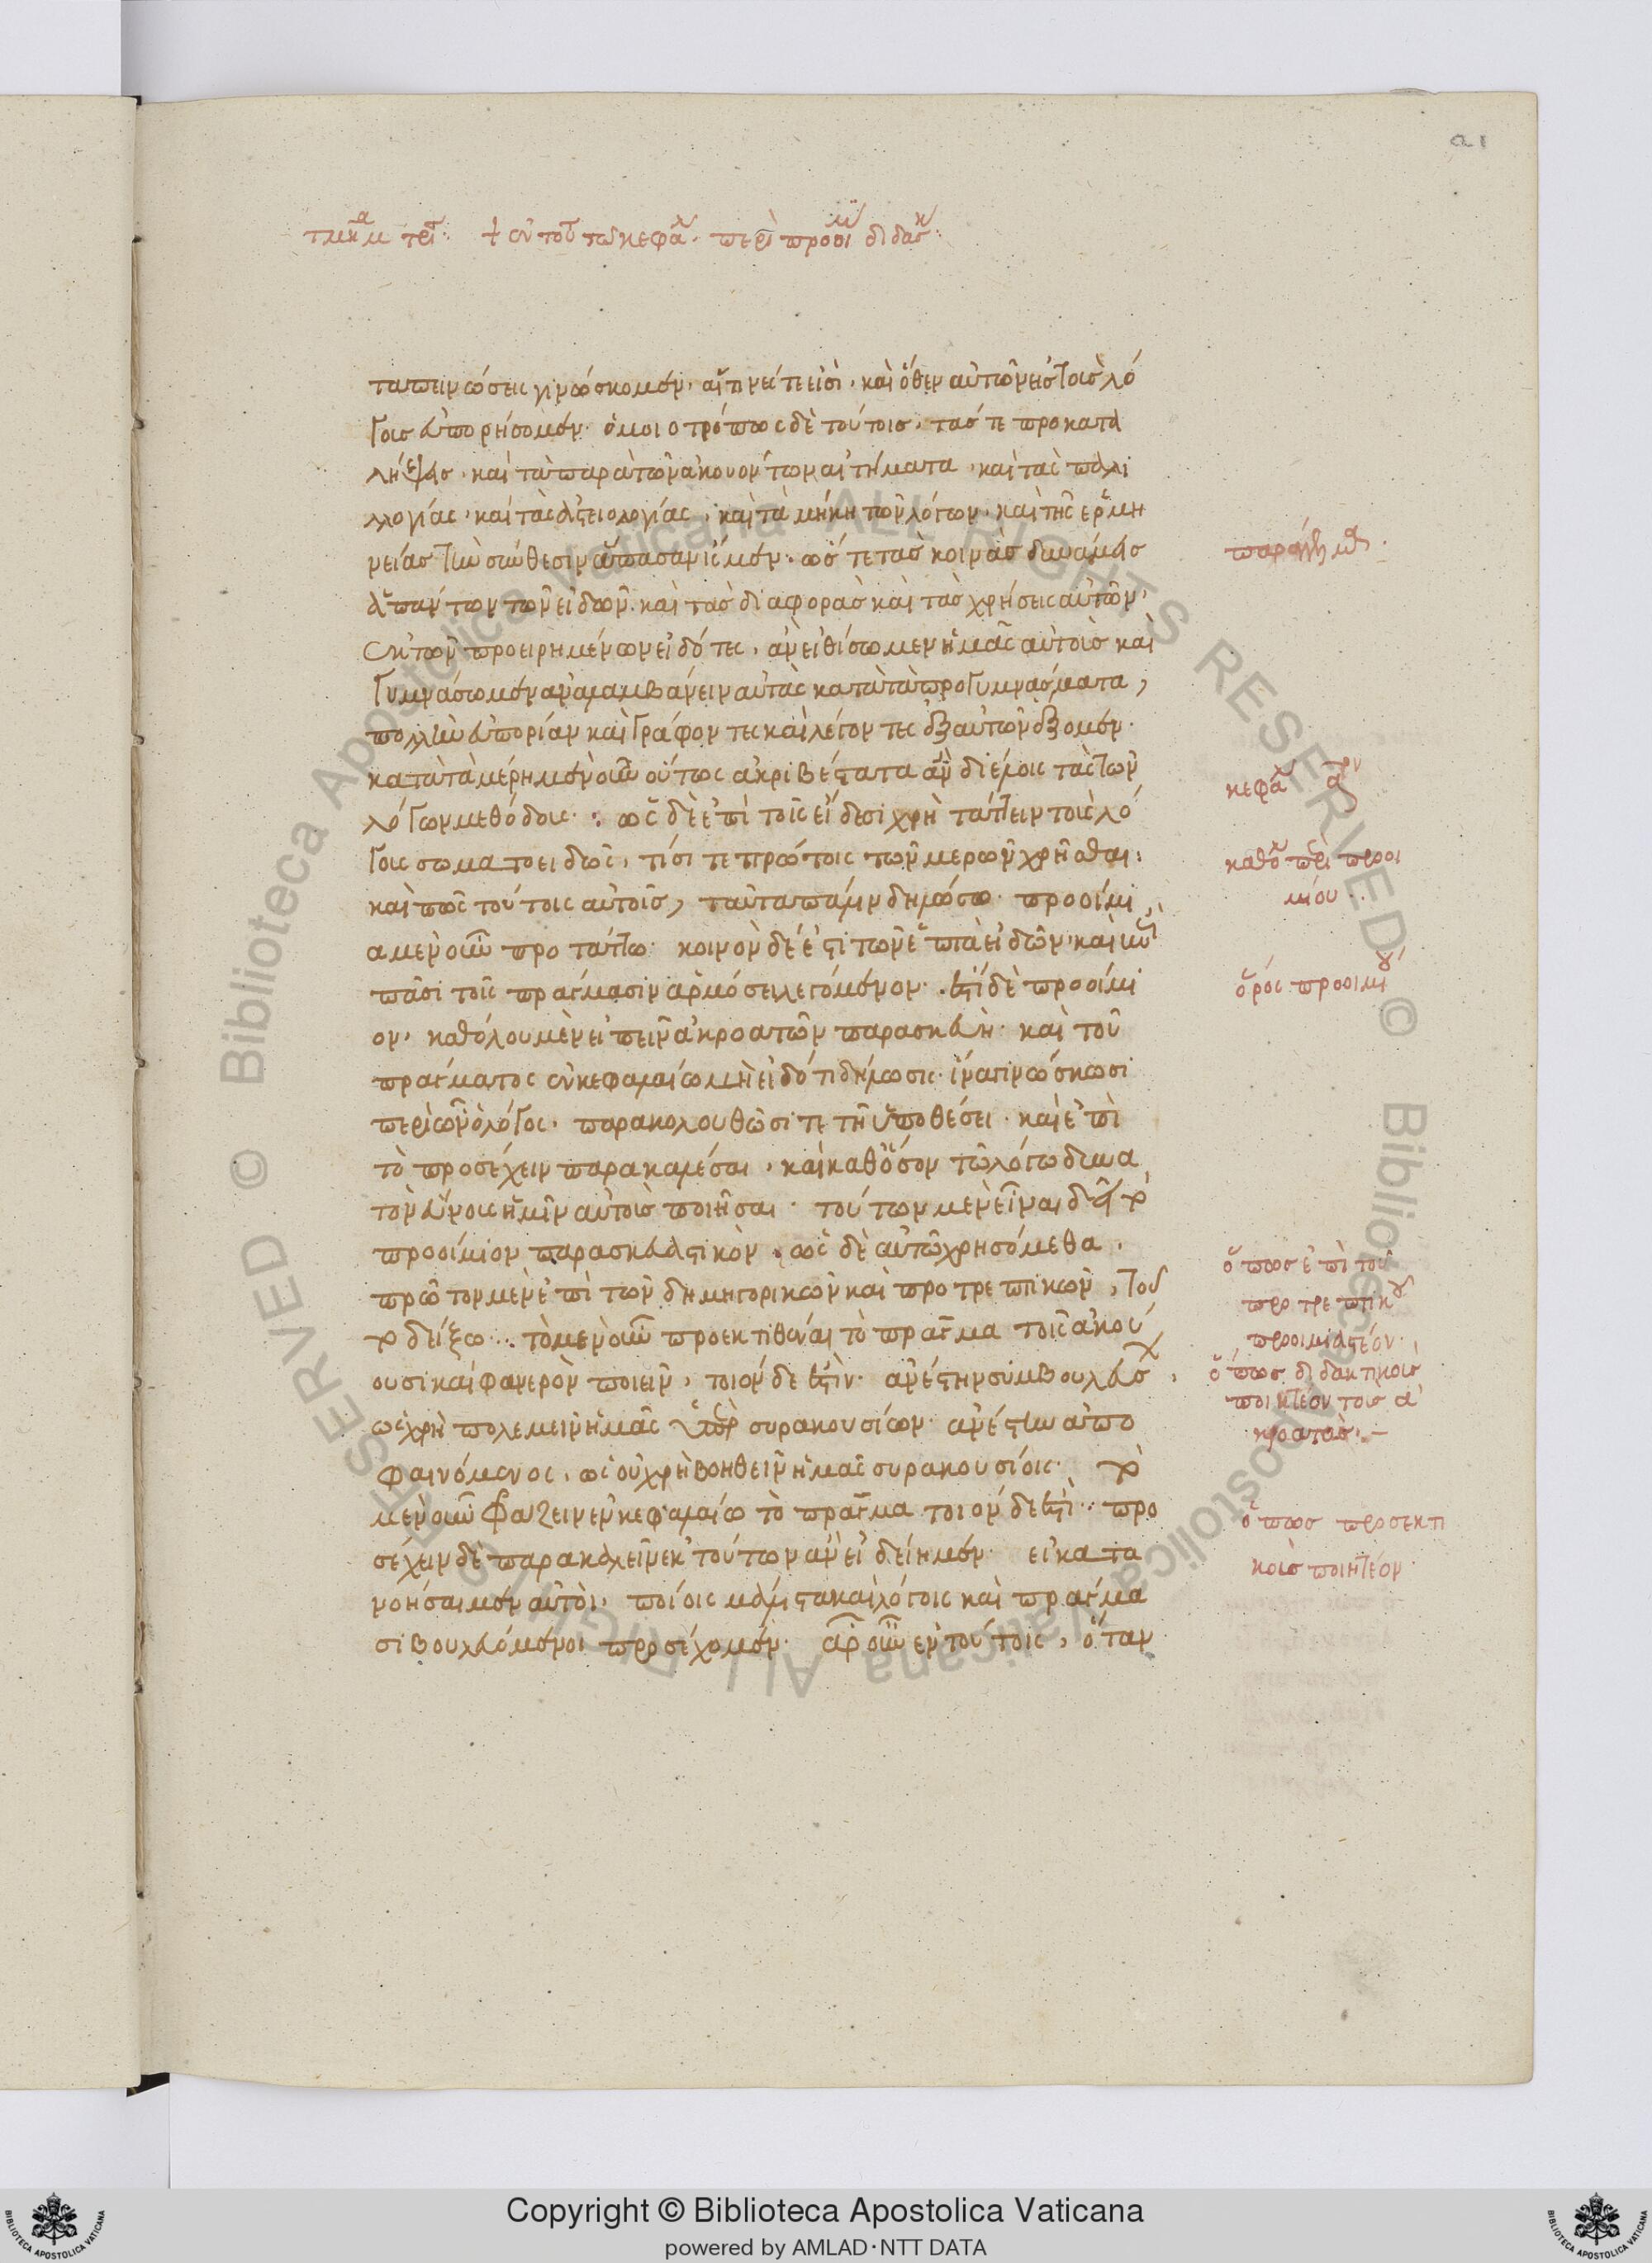 τμῆμα τρί· ἐν τούτω τῶ κεφαλ περὶ προοιμ διδάσκ·
ταπεινώσεις γινώσκομεν, αἵτινές τέ εἰσι, καὶ ὅθεν αὐτῶν εἰς τοὺς λό
γους εὐπορήσομεν· ὁμοιοτρόπως δὲ τούτοις, τάς τε προκατα
λήψεις, καὶ τὰ παρὰ τῶν ἀκουόντων αἰτήματα, καὶ τὰς παλι
λλογίας, καὶ τὰς ἀστειολογίας, καὶ τὰ μήκη τῶν λόγων, καὶ τῆς ἑρμη
νείας τὴν σύνθεσιν ἅπασαν ἴσμεν· ὥστε τὰς κοινὰς δυνάμεις
ἁπάντων τῶν εἰδῶν, καὶ τὰς διαφορὰς καὶ τὰς χρήσεις αὐτῶν,
ἐκ τῶν προειρημένων εἰδότες, ἂν ἐθίσωμεν ἡμᾶς αὐτοὺς καὶ
γυμνάσωμεν ἀναλαμβάνειν αὐτὰς κατὰ τὰ προγυμνάσματα,
πολλὴν εὐπορίαν καὶ γράφοντες καὶ λέγοντες ἐξ αὐτῶν ἕξομεν·
κατὰ τὰ μέρη μὲν οὖν οὕτως ἀκριβέστατα ἂν διέλοις τὰς τῶν
λόγων μεθόδους· : ὡς δὲ ἐπὶ τοῖς εἴδεσι χρὴ τάττειν τοὺς λό
γους σωματοειδῶς, τίσι τε πρώτοις τῶν μερῶν χρῆσθαι:
καὶ πῶς τούτοις αὐτοῖς, ταῦτα πάλιν δηλώσω· προοίμι
α μὲν οὖν προτάττω· κοινὸν δέ ἐστι τῶν ἑπτὰ εἰδῶν, καὶ
πᾶσι τοῖς πράγμασιν ἁρμόσει λεγόμενον· ἔστι δὲ προοίμι
ον, καθόλου μὲν εἰπεῖν ἀκροατῶν παρασκευὴ· καὶ τοῦ
πράγματος ἐν κεφαλαίω μὴ εἰδότι δήλωσις· ἵνα γινώσκωσι
περὶ ὧν ὁ λόγος, παρακολουθῶσί τε τῆ ὑποθέσει· καὶ ἐπὶ
τὸ προσέχειν παρακαλέσαι, καὶ καθόσον τῶ λόγω δυνα
τὸν εὔνους ἡμῖν αὐτοὺς ποιῆσαι· τούτων μὲν εἶναι δεῖ τὸ
προοίμιον παρασκευαστικὸν· ὡς δὲ αὐτῶ χρησόμεθα,
πρῶτον μὲν ἐπὶ τῶν δημηγορικῶν καὶ προτρεπτικῶν, τοῦ
το δείξω· τὸ μὲν οὖν προεκτιθέναι τὸ πρᾶγμα τοῖς ἀκού
ουσι καὶ φανερὸν ποιεῖν, τοιόνδε ἐστὶν· ἀνέστην συμβουλεύσων,
ὡς χρὴ πολεμεῖν ἡμᾶς ὑπὲρ συρακουσίων· ἀνέστην ἀπο
φαινόμενος, ὡς οὐ χρὴ βοηθεῖν ἡμᾶς συρακουσίοις· τὸ
μὲν οὖν φράζειν ἐν κεφαλαίω τὸ πρᾶγμα τοιόνδε ἐστί· προ
σέχειν δὲ παρακαλεῖν ἐκ τούτων ἂν εἰδείημεν· εἰ κατα
νοήσαιμεν αὐτοὶ, ποίοις μάλιστα καὶ λόγοις καὶ πράγμα
σι βουλευόμενοι προσέχομεν· ἆρ' οὖν ἐν τούτοις, ὅταν
κεφάλ
καθόλ περὶ προοι
μίου·
ὅρος προοιμίου
ὅπως ἐπὶ τοῦ
προτρεπτικοῦ
προοιμιαστέον·
ὅπως διδακτικοὺς
ποιητέον τοὺς ἀ
κροατὰς·
ὅπως προσεκτι
κοὺς ποιητέον·